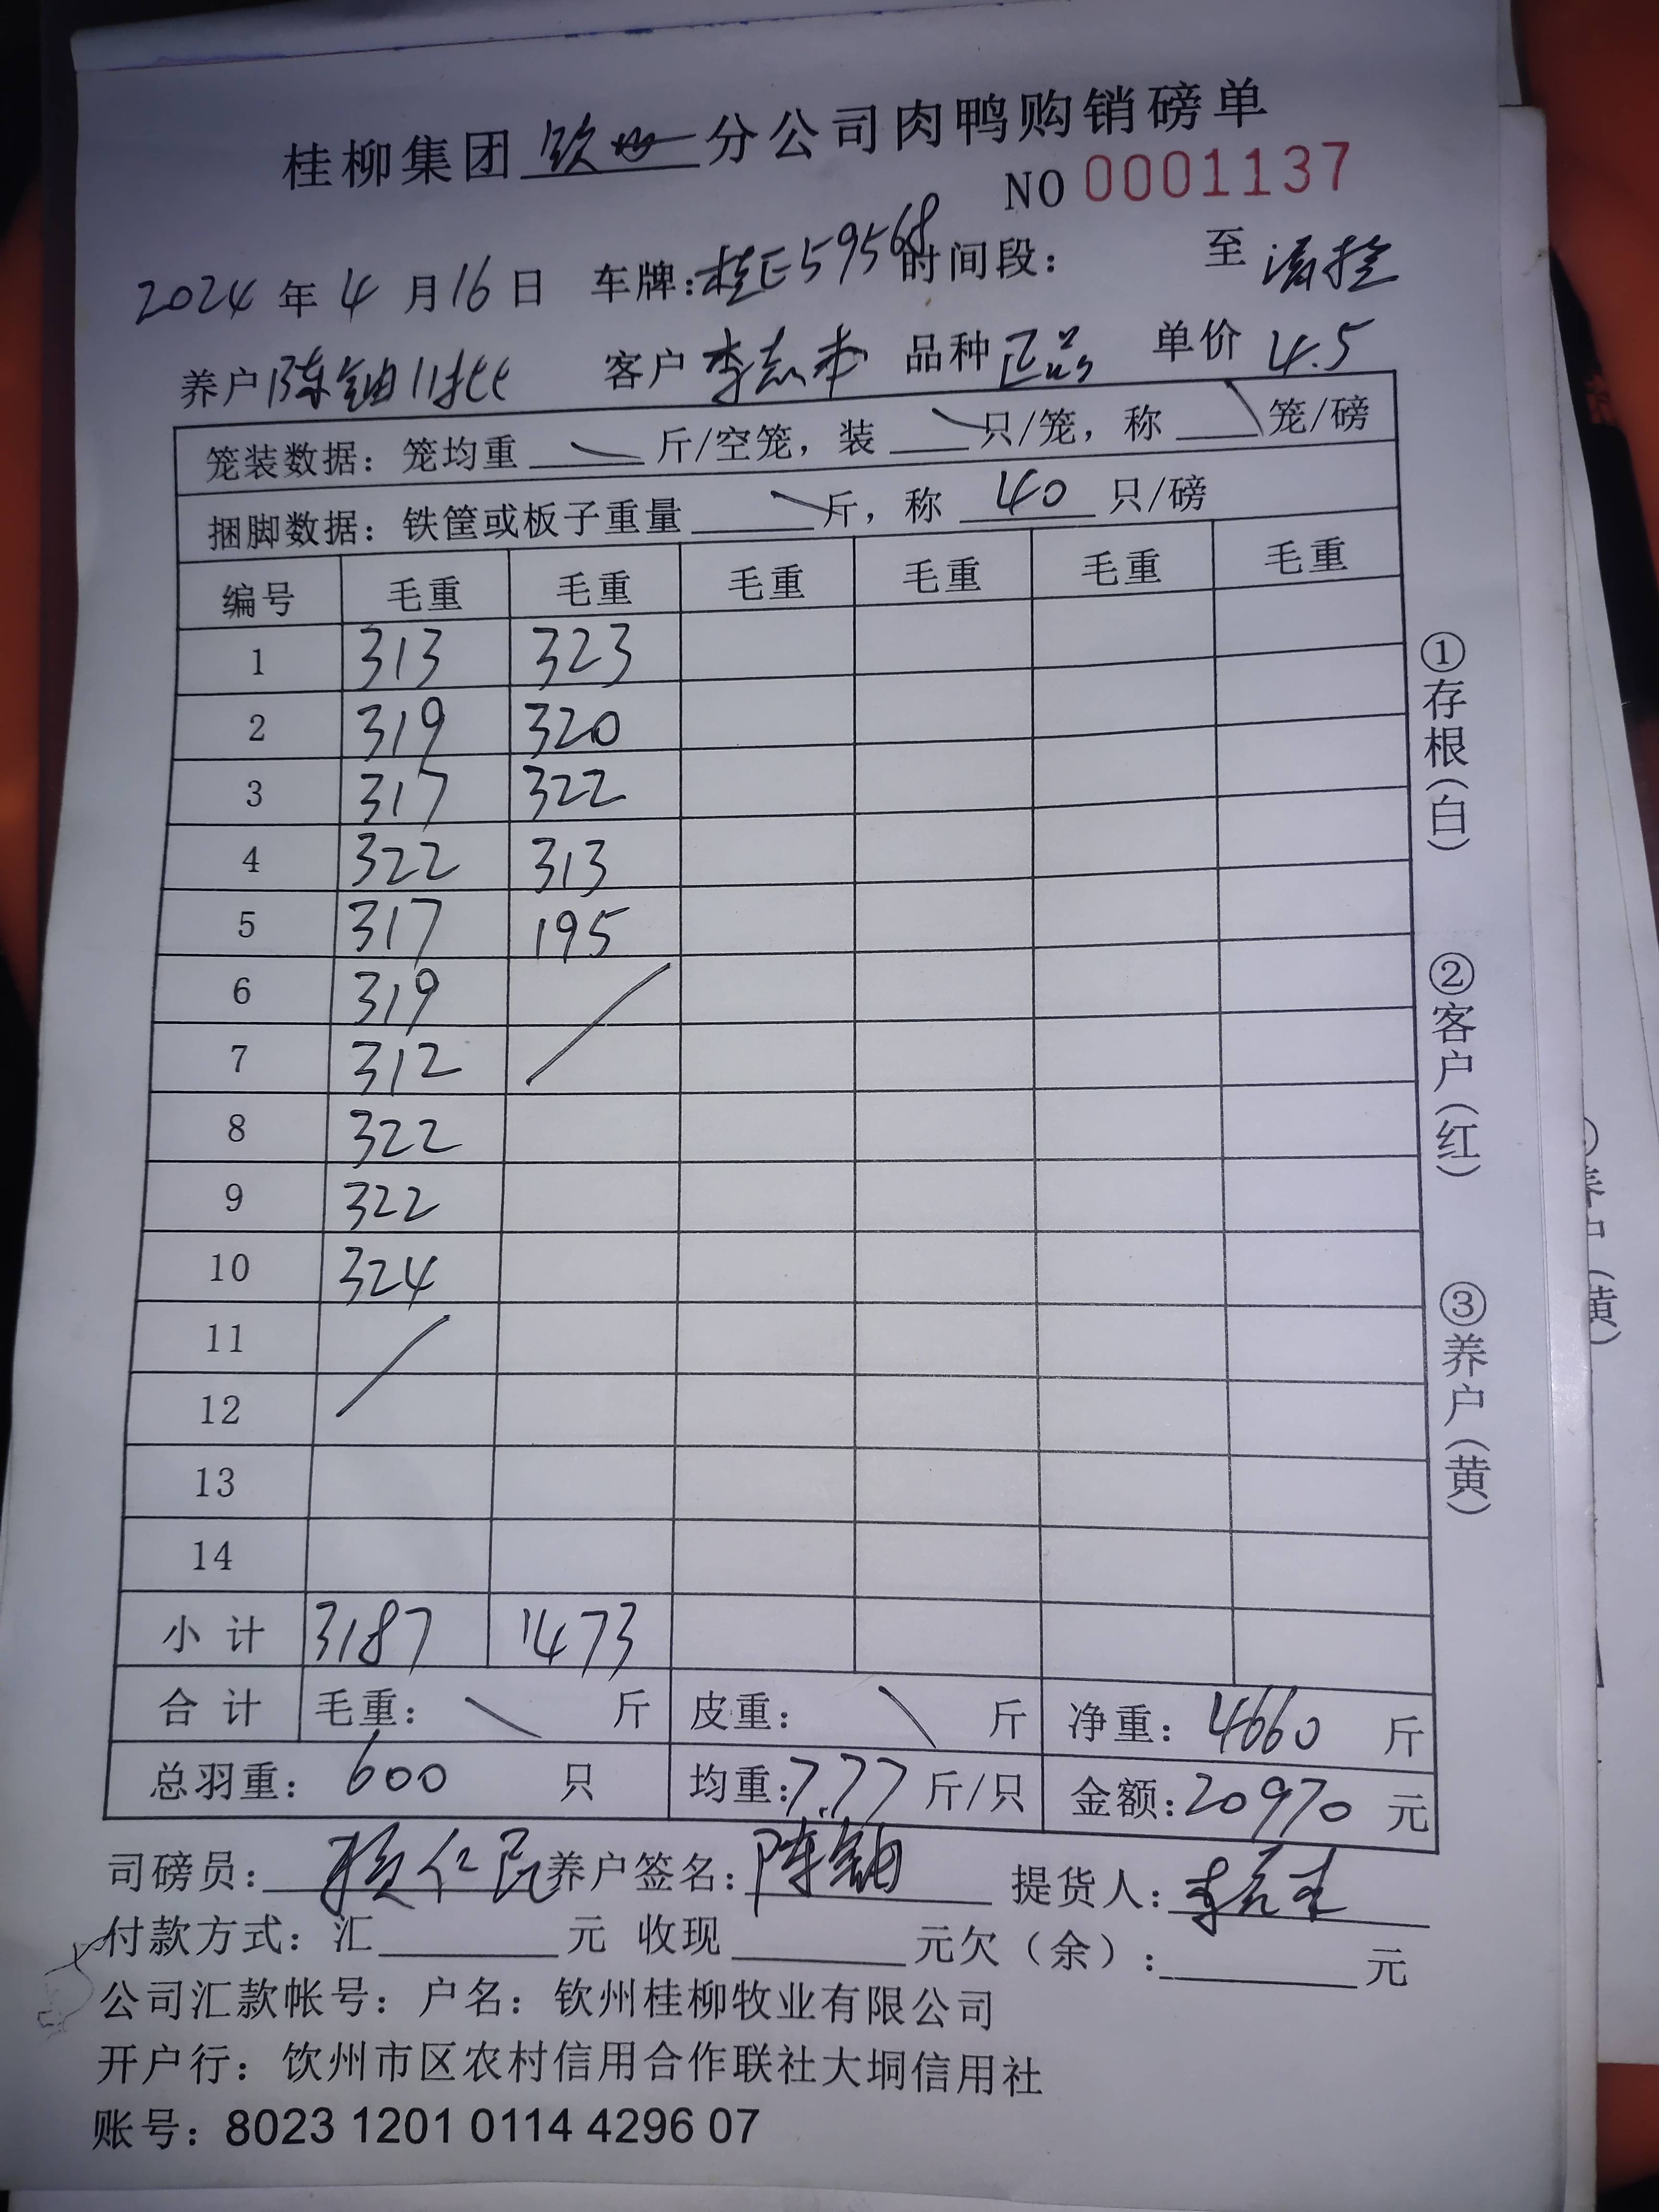 桂柳集团 钦州 分公司肉鸭购销磅单
NO 0001137
2024 年 4 月 16 日 车牌:桂E59568 时间段: 至
养户 陈铀11批 客户 李志本 品种 正品 单价 4.5
笼装数据: 笼均重 斤/空笼, 装 只/笼, 称 笼/磅
捆脚数据: 铁筐或板子重量 斤, 称 40 只/磅
编号 毛重 毛重 毛重 毛重 毛重 毛重
1 313 323
2 319 320
3 317 322
4 322 313
5 317 195
6 319
7 312
8 322
9 322
10 324
11
12
13
14
小 计 3187 1473
合 计 毛重: 斤 皮重: 斤 净重: 4660 斤
总羽重: 600 只 均重:7.77 斤/只 金额:20970 元
①存根(白)
②客户(红)
③养户(黄)
司磅员: 仁民 养户签名: 陈铀 提货人: 李志本
付款方式: 汇 元 收现 元欠(余): 元
公司汇款帐号: 户名: 钦州桂柳牧业有限公司
开户行: 饮州市区农村信用合作联社大垌信用社
账号: 8023 1201 0114 4296 07